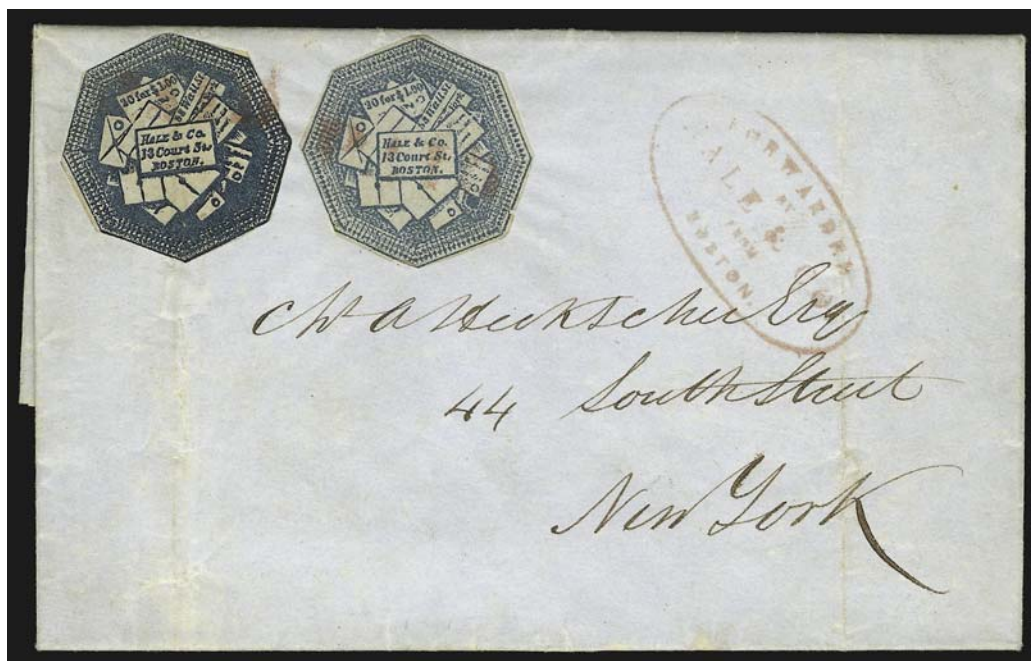 20 for $1.00
HALE & Co.
13 Court St.
BOSTON.
20 for $1.00
HALE & Co.
13 Court St.
BOSTON.
FORWARDED
BY
HALE & Co
FROM
BOSTON.
Ch A Heckscher Esq
44 South Street
New York